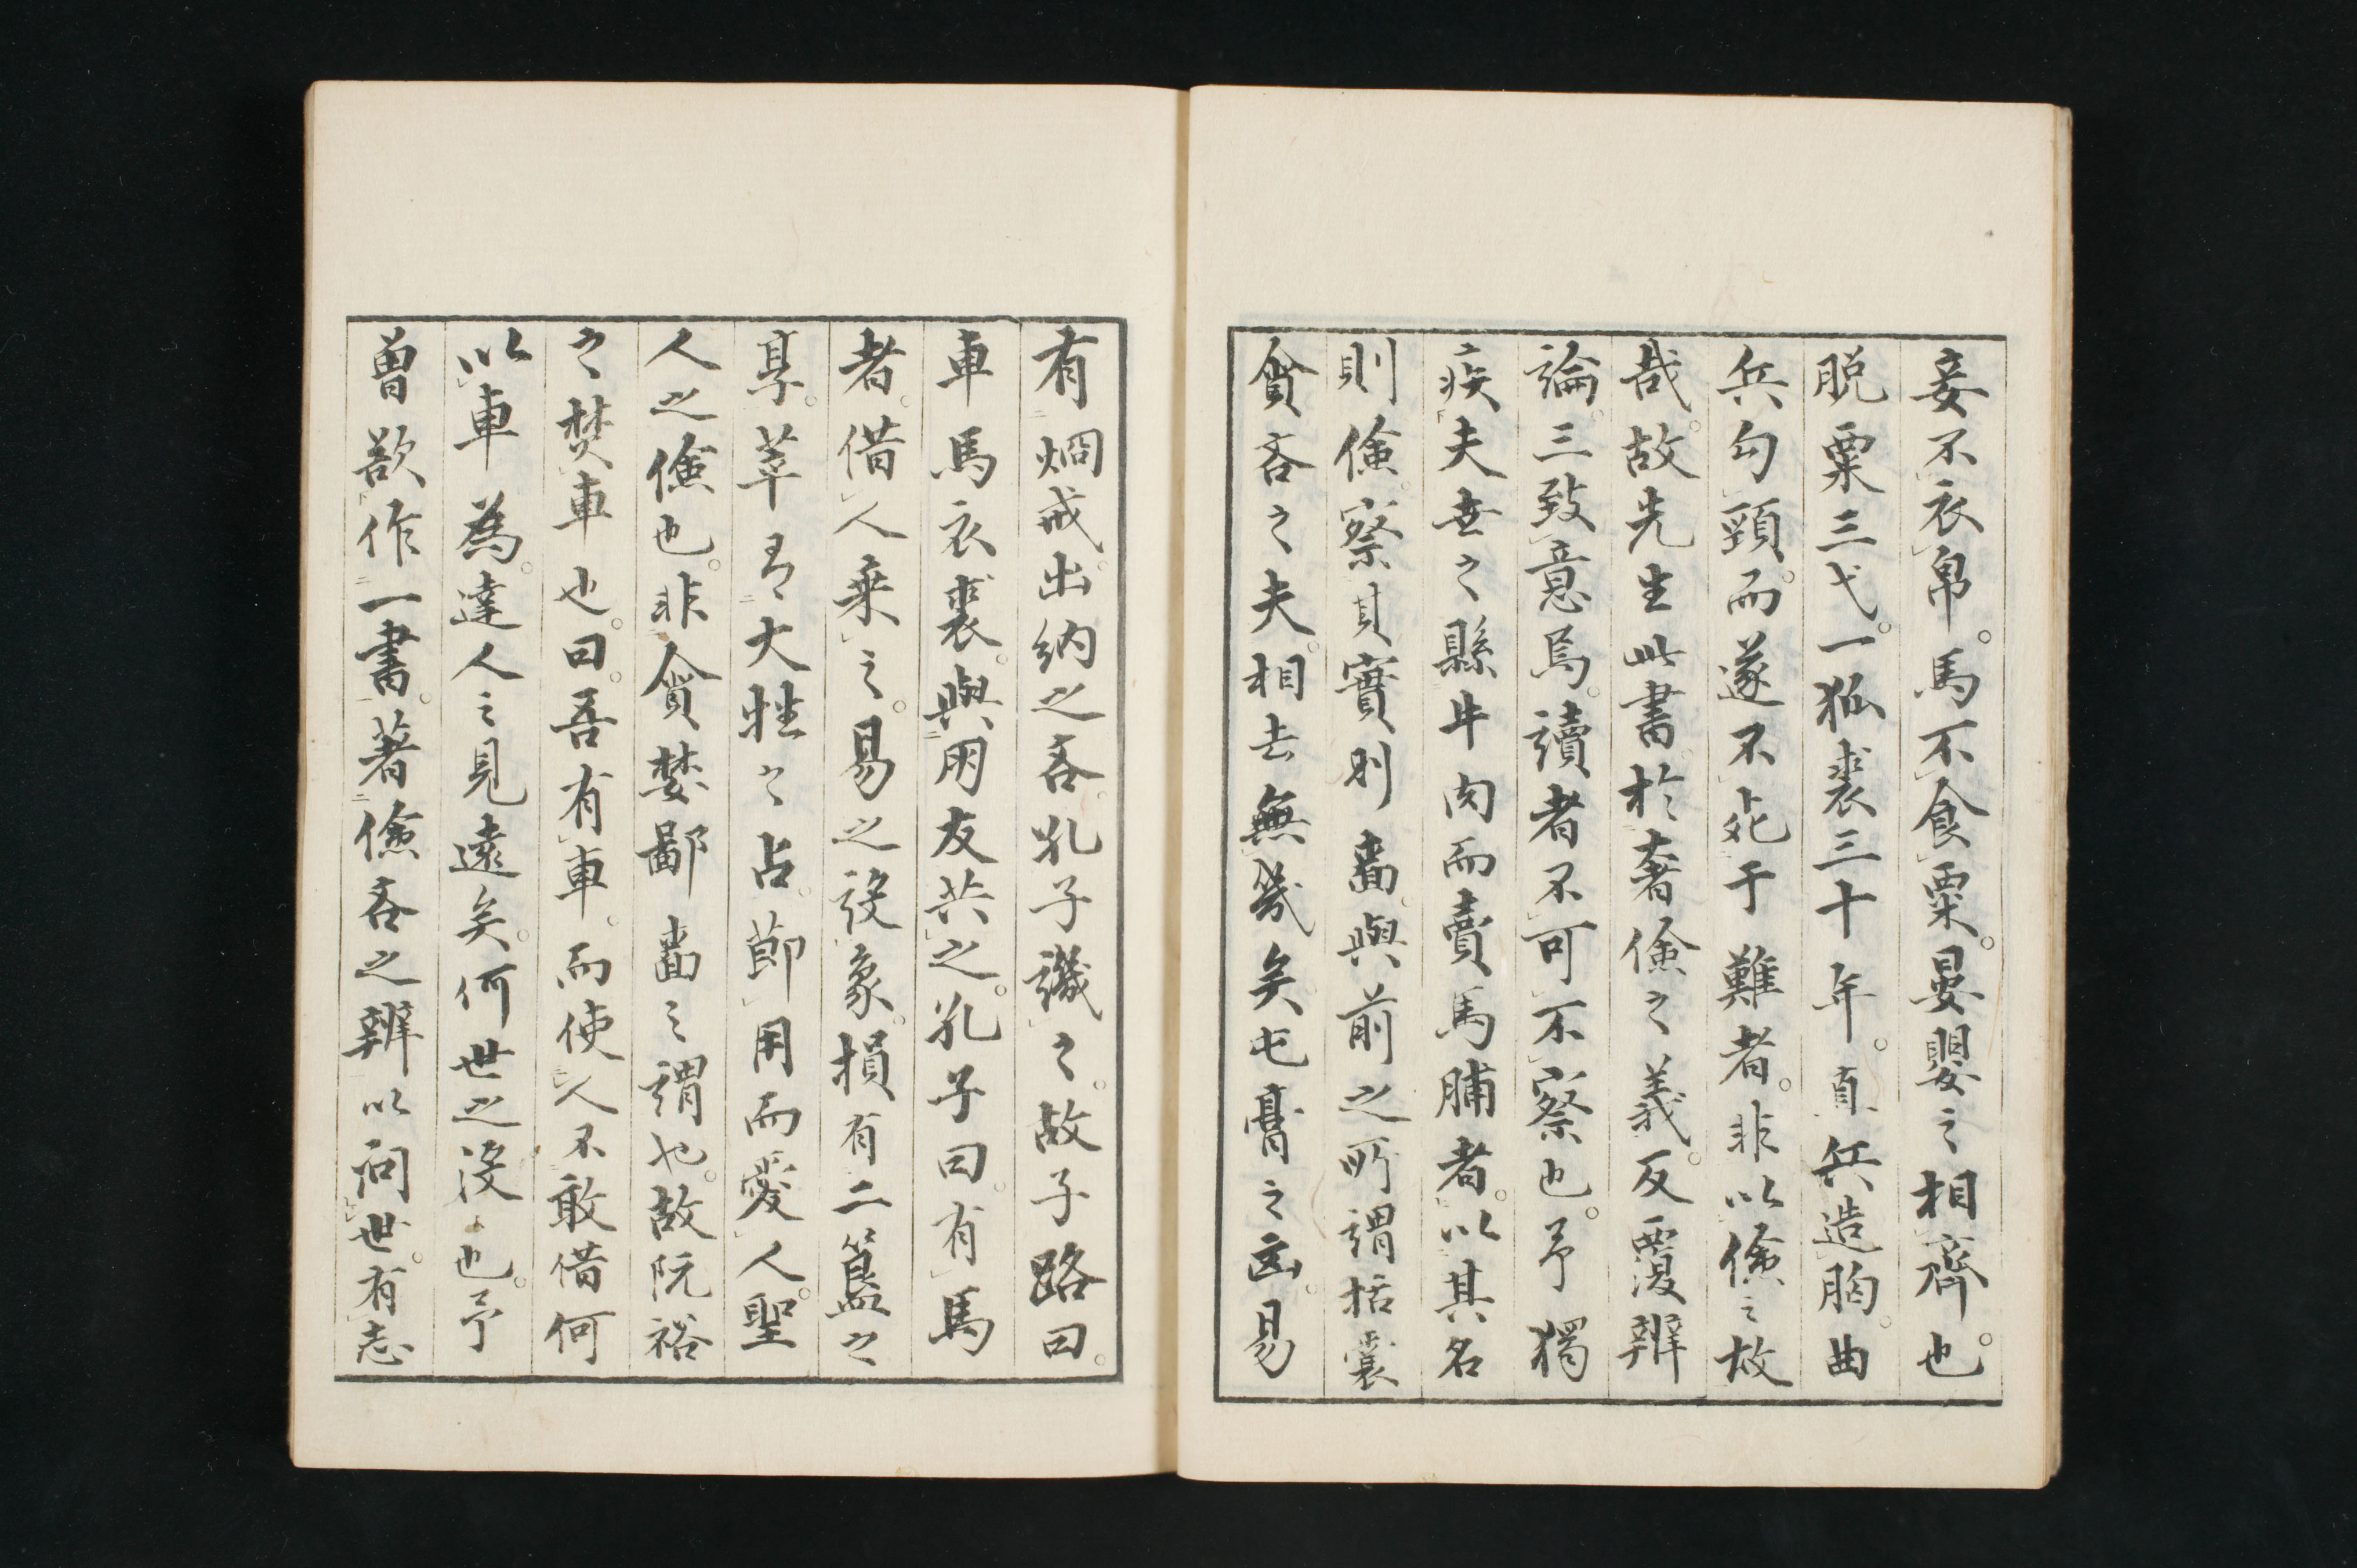 妾不衣帛。馬不食粟。晏嬰之相齊也。
脱粟三弋。一狐裘三十年。直兵造胸。曲
兵勾頸。而遂不死于難者。非以儉之故
哉。故先生此書。於奢儉之義。反覆辨
論。三致意焉。讀者不可不察也。予獨
疾夫世之縣牛肉而賣馬脯者。以其名
則儉。察其實則嗇。與前之所謂括囊
貪吝之夫。相去無幾矣。屯膏之凶。易
有烱戒。出納之吝。孔子譏之。故子路曰。
車馬衣裘。與朋友共之。孔子曰。有馬
者。借人乘之。易之設象。損有二簋之
享。萃有大牲之占。節用而愛人。聖
人之儉也。非貪婪鄙嗇之謂也。故阮裕
之焚車也。曰。吾有車。而使人不敢借。何
以車為。達人之見遠矣。何世之没没也。予
曽欲作一書。著儉吝之辨以问世。有志